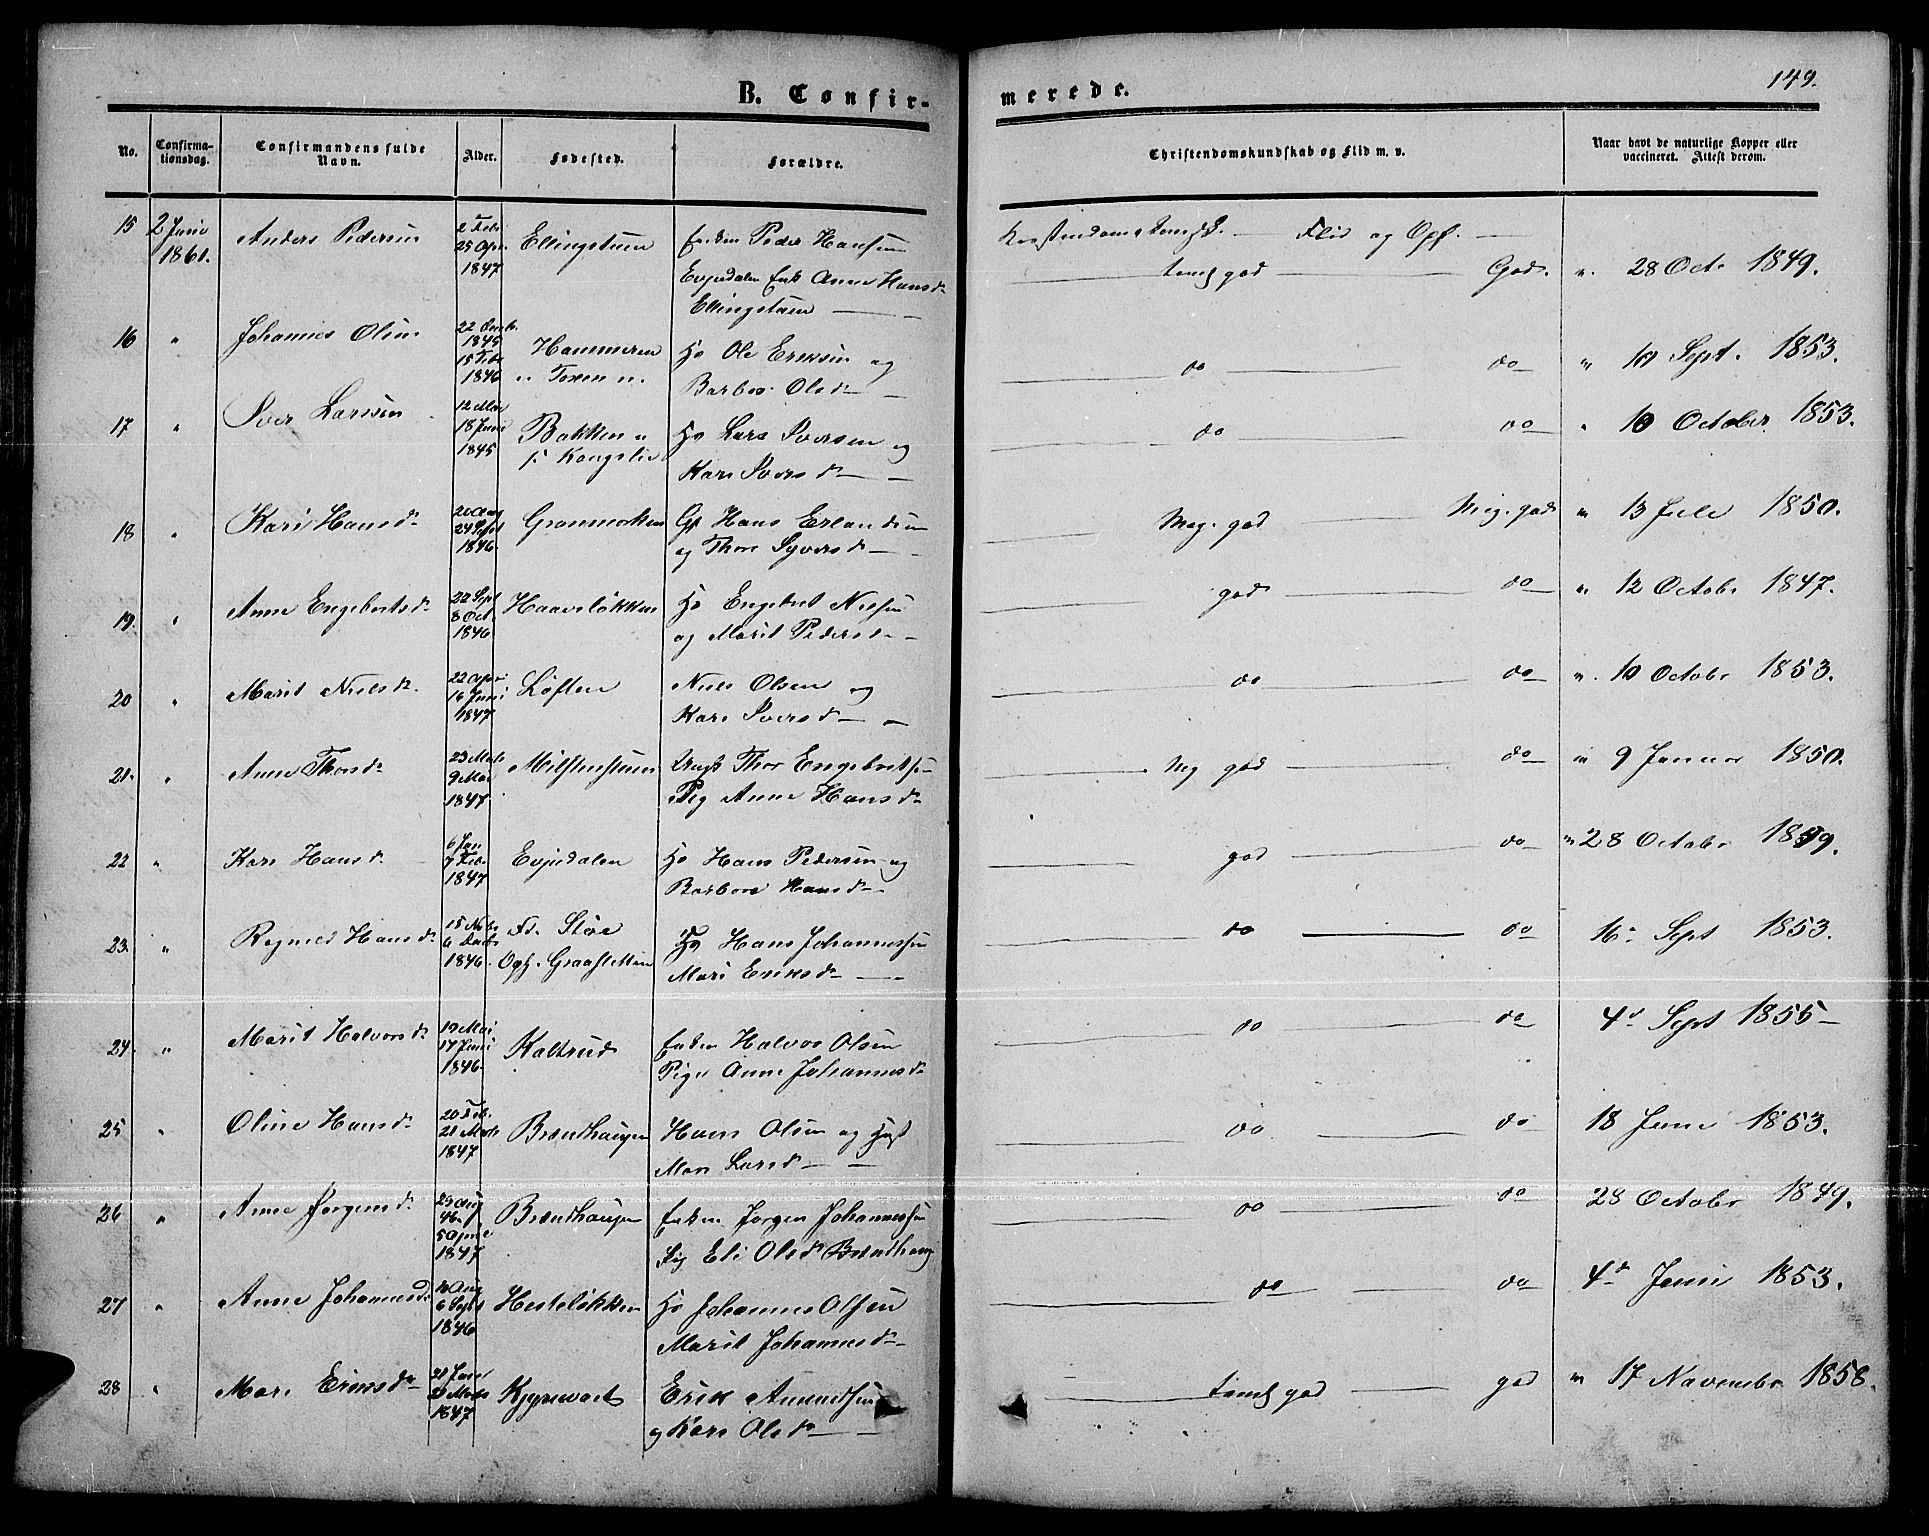 149.
B. Confirmerede.
No. Confirmationsdag. Confirmandens fulde Navn. Alder. Fødested. Forældre. Christendomskundskab og Flid m. v. Naar havt de naturlige Kopper eller vaccineret. Attest derom.
15 2 Juni 1861. Anders Pedersen 2 Feb 25 Apr 1847 Ellingstuen Enkem Peder Hansen
Evjedalen Enk Anne Hansd
Ellingstuen
Flid og Opf.
temlgod God. " 28 Octo 1849.
16 " Johannes Olsen 22 1845 15 Feb 1846 Hammeren Ho Ole Eriksen og
Barbro Olsd
do do " 10 Sept. 1853.
17 " Iver Larssen 12 Mai 18 Juni 1845 Bakken u Kongslie Ho Lars Iversen og
Kari Iversd
do do " 10 October 1853.
18 " Kari Hansd 20 Aug 24 Sept 1846 Granmorken Gp Hans Erlandsen
og Thore Syversd
Meg. god Meg. god " 13 Juli 1850.
19. " Anne Engebretsd 22 Sept 8 Oct. 1846 Haavelökken Ho Engebret Nielsen
og Marit Pedersd
god do " 12 Octobr 1847.
20 " Marit Nielsd. 22 Apr 16 Juni 1847 Løften Niels Olsen og
Kari Iversd
do do " 10 Octobr 1853.
21. " Anne Thorsd 23 Mars 9 Mai 1847 Milstenstuen Ungk Thor Engebretsen
Pig Anne Hansd
Meg god do " 9 Januar 1850.
22 " Kari Hansd 6 Jan 7 Feb. 1847 Evjedalen Ho Hans Pedersen og
Barbro Hansd
god do " 28 Octobr 1849.
23. " Regnild Hansd 15 Nobr 6 Decbr 1846. Fd. Støe
Oph. Graasletten Ho Hans Johannessen
Mari Eriksd
do do 16de Sept 1853.
24. " Marit Halvorsd 19 Mai 17 Juni 1846. Kaltrud Enkem Halvor Olsen
Pige Anne Johannesd
do do 4d Sept 1855
25 " Oline Hansd 20 Feb. 21 Mars 1847 Brændhaugen Hans Olsen og Hust
Mari Larsd
do do 18 Juni 1853.
26 " Anne Jørgensd 29 Aug 46 5 April 1847 Brændhaugen Enkem Jørgen Johannessen
Pig Eli Olsd Brændhaug
do do 28 Octobr 1849.
27 " Anne Johannesd Aug 6 Sept 1846 Hestelökken Ho Johannes Olsen
Marit Johannesd
do do 4d Juni 1853.
28 " Mari Eriksd 21 Jan 21 Mars 1847 Kjyrevoet Erik Amundsen
og Kari Olsd
temlgod god " 17 Novembr 1858.